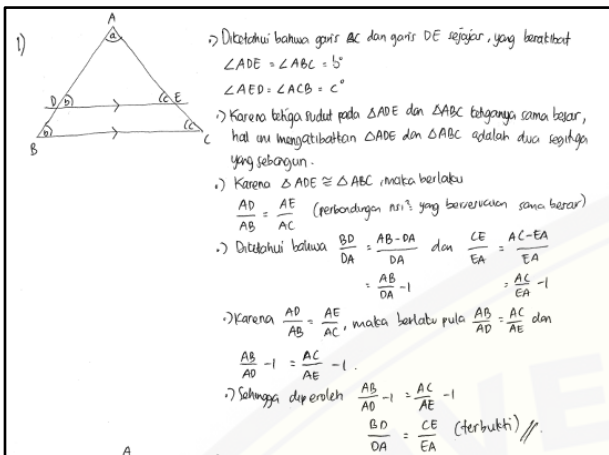 1)
A
a
D b c E
b c
B C
•) Diketahui bahwa garis BC dan garis DE sejajar, yang berakibat
∠ADE = ∠ABC = b°
∠AED = ∠ACB = c°
•) Karena ketiga sudut pada △ADE dan △ABC ketiganya sama besar,
hal ini mengakibatkan △ADE dan △ABC adalah dua segitiga
yang sebangun.
•) Karena △ADE ≅ △ABC, maka berlaku
AD/AB = AE/AC (perbandingan sisi² yang bersesuaian sama besar)
•) Diketahui bahwa BD/DA = AB-DA/DA dan CE/EA = AC-EA/EA
= AB/DA - 1 = AC/EA - 1
•) Karena AD/AB = AE/AC, maka berlaku pula AB/AD = AC/AE dan
AB/AD - 1 = AC/AE - 1.
•) Sehingga diperoleh AB/AD - 1 = AC/AE - 1
BD/DA = CE/EA (terbukti) //.
A